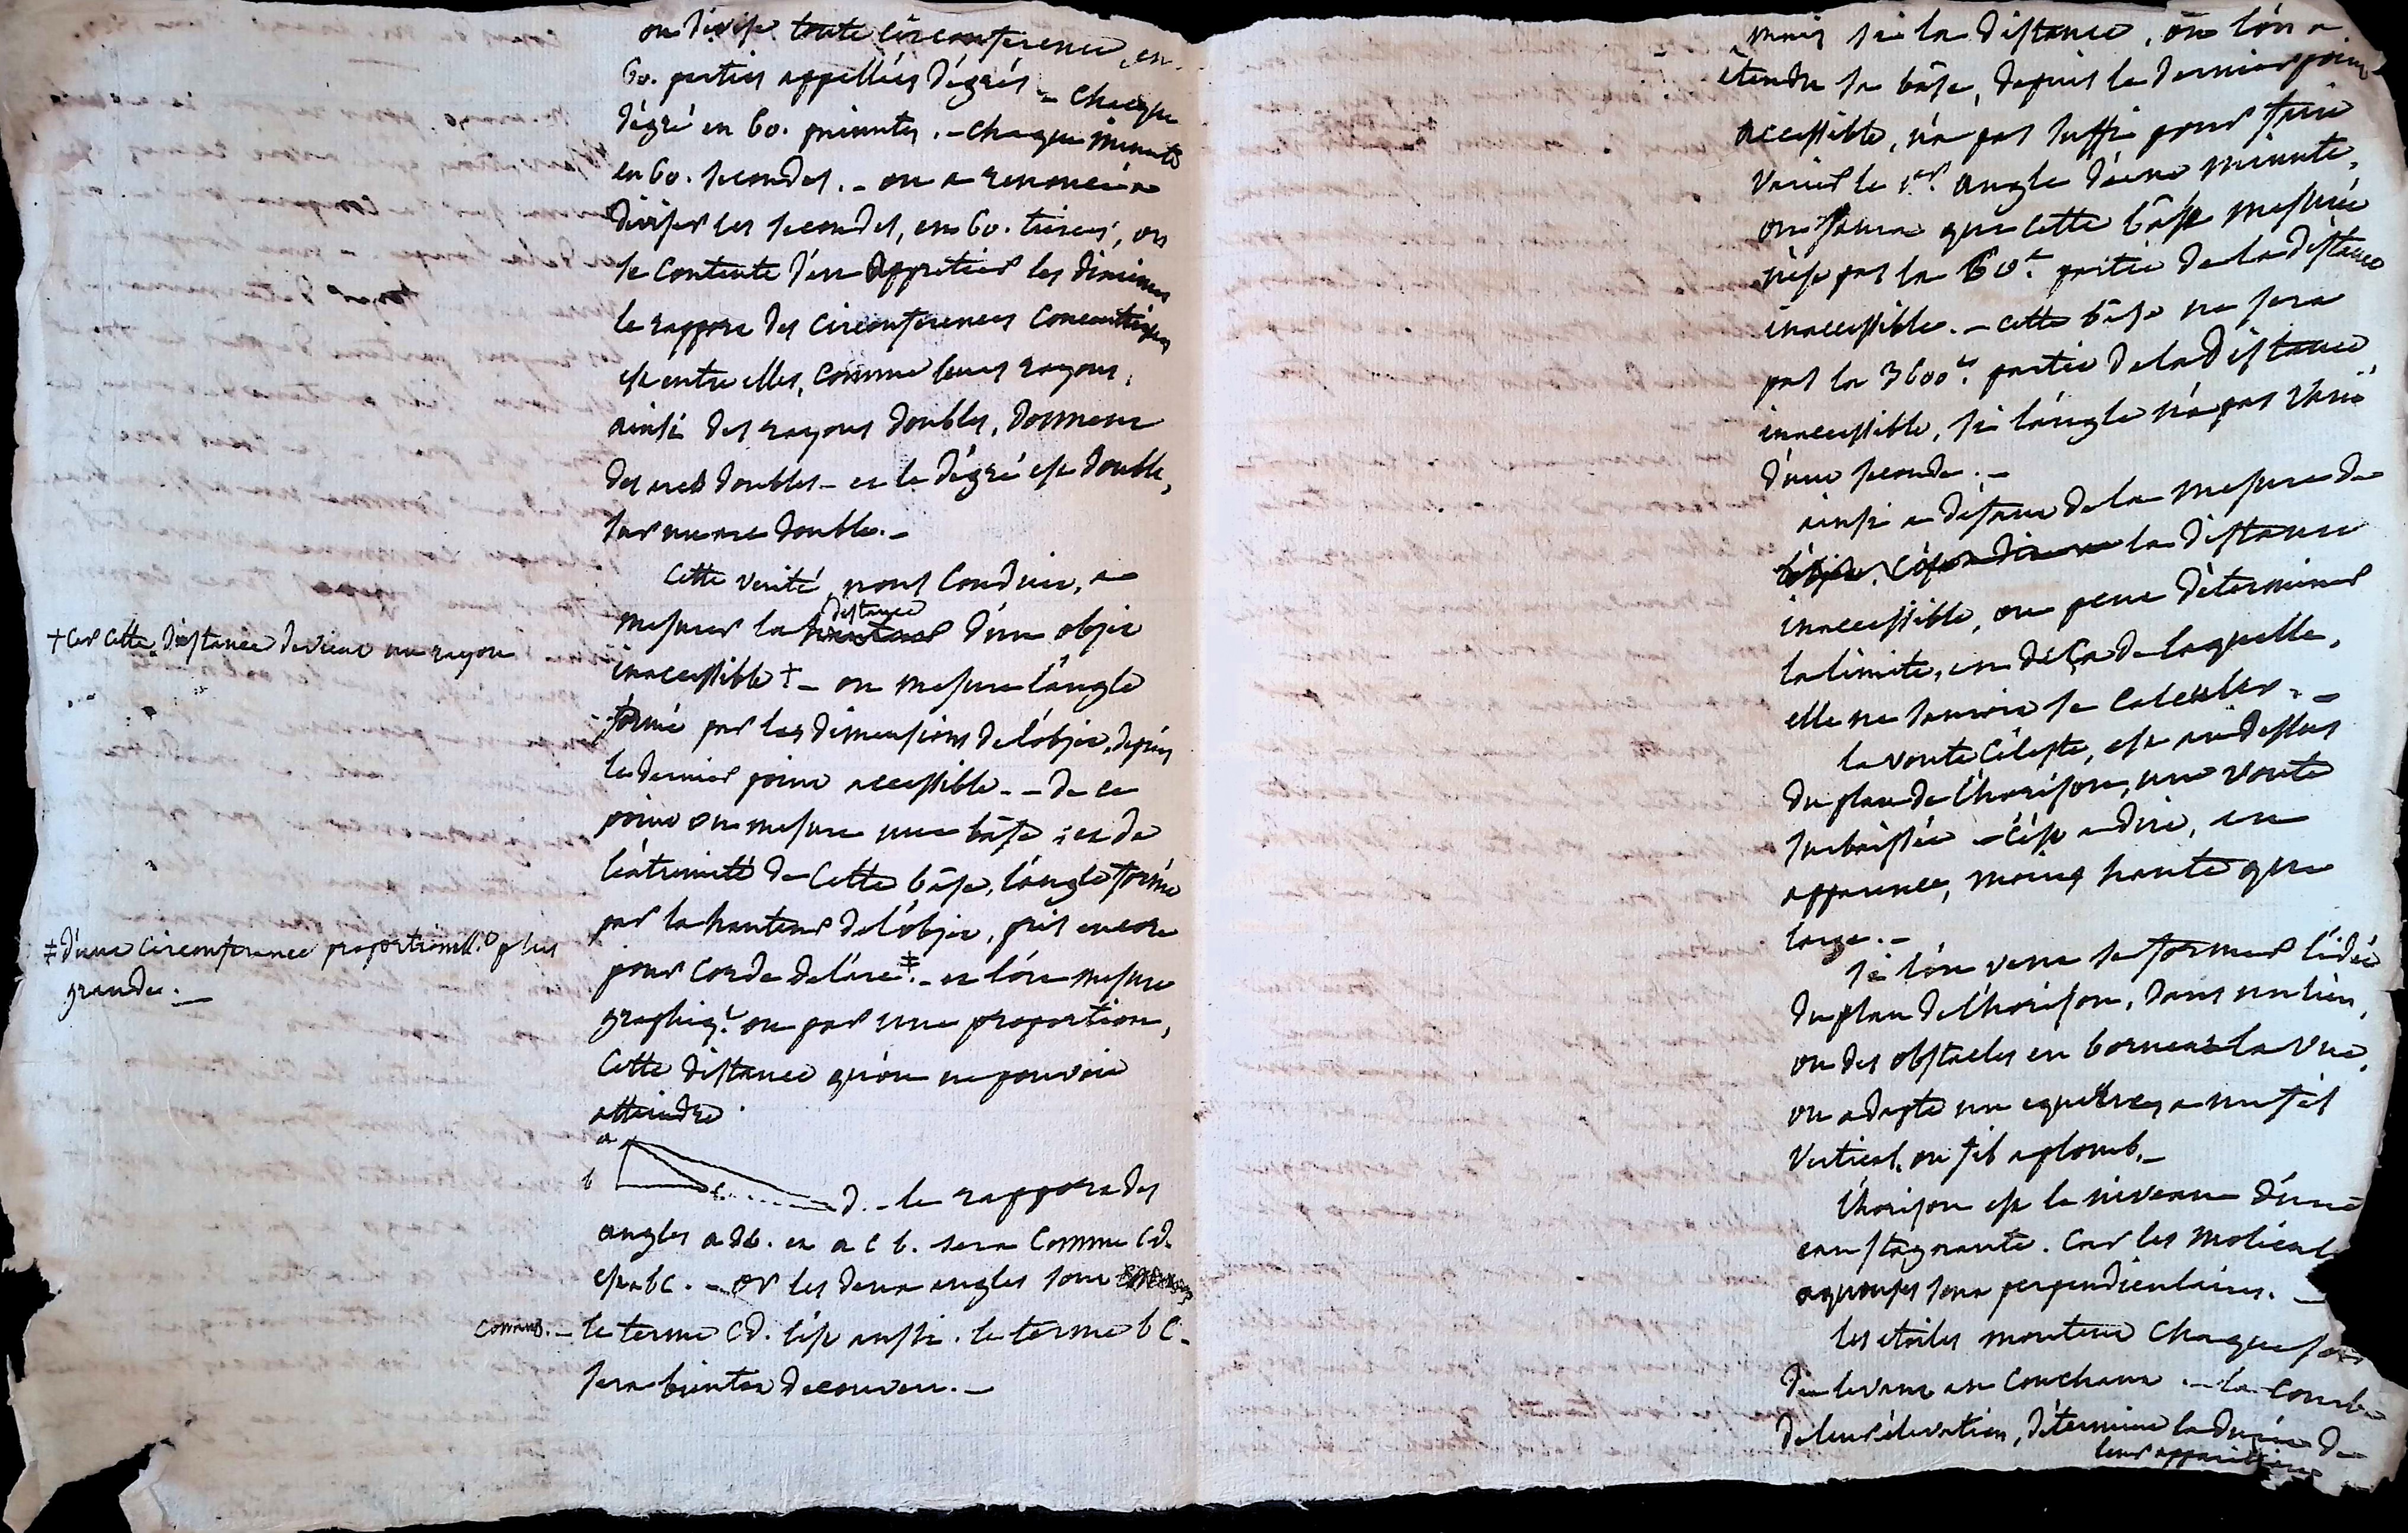 on divise toute circonference, en
60. parties appellées dégrés - chaque
dégré en 60. minutes. - chaque minute
en 60. secondes. - on a renoncé a
diviser les secondes, en 60. tierces, on
se contente d'en appretier les dixiemes
le rapport des circonferences concentriques
est entre elles, comme leurs rayons.
ainsi des rayons doubles, donnent
des arcs doubles - et le dégré est double,
sur un arc double. -
cette verité nous conduit, a
mesurer la hauteur distance d'un objet
inaccessible † - on mesure l'angle
† car cette distance devient un rayon
formé par les dimensions de l'objet, depuis
le dernier point accessible. - de ce
point on mesure une bâse ; et de
l'extremité de cette bâse, l'angle formé
par la hauteur de l'objet, pris encore
pour corde de l'arc ‡. - et l'on mesure
‡ d'une circonference proportionell.t plus
grande. -
graphiq.t ou par une proportion,
cette distance qu'on ne pouvoit
atteindre.
a
b c d. - le rapport des
angles a d b. et a c b. sera comme c d.
est a b c. - or les deux angles sont
connus. - le terme c d. l'est aussi. le terme b c.
sera bientot decouvert. -
mais si la distance, où l'on a
étendu sa bâse, depuis le dernier point
accessible, n'a pas suffi pour faire
varier le 1.er angle d'une minute,
on saura que cette bâse mesurée
n'est pas la 60.e partie de la distance
inaccessible. - cette bâse ne sera
pas la 3600.e partie de la distance
inaccessible, si l'angle n'a pas varié
d'une seconde. -
ainsi a defaut de la mesure de
l'objet, c'est a dire la distance
inaccessible, on peut déterminer
la limite, en deça de laquelle,
elle ne sauroit se calculer. -
la voute céleste, est au dessus
du plan de l'horison, une voute
surbaissée - c'est a dire, en
apparence, moins haute que
large. -
si l'on veut se former l'idée
du plan de l'horison, dans un lieu,
ou des obstacles en bornent la vue,
on adapte un equerre, a un fil
vertical, ou fil a plomb. -
l'horison est le niveau d'une
eau stagnante. car les molecules
aqueuses sont perpendiculaires. -
les etoiles montent chaque
du levant au couchant. - la courbe
de leur élevation, détermine la durée de
leur apparition